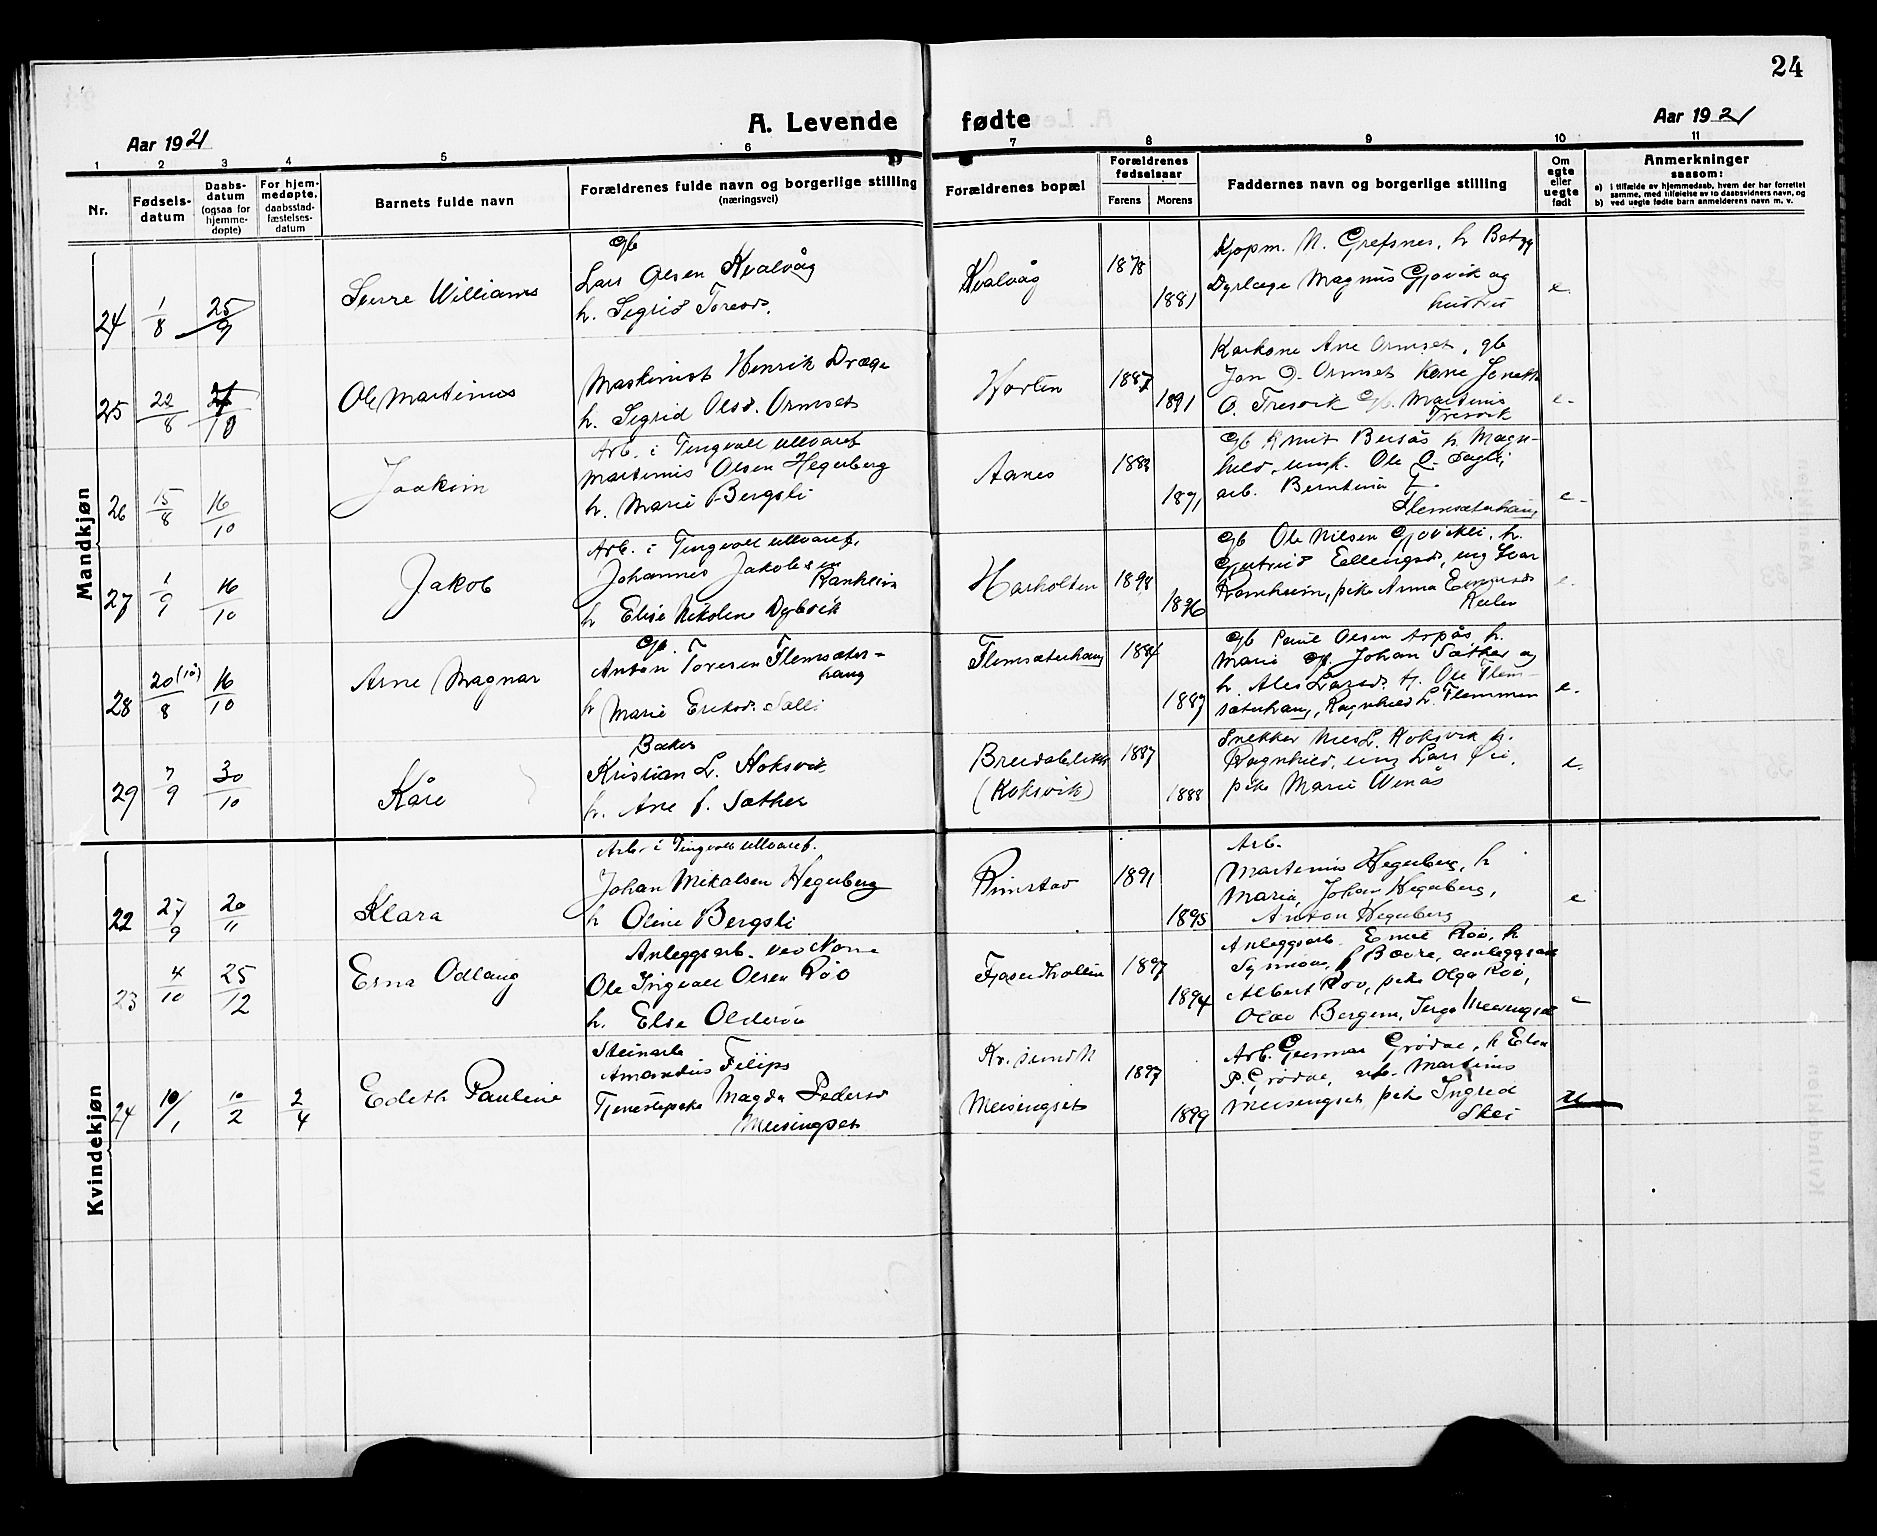 24
A. Levende fødte
Aar 1921
Aar 1921
1 2 3 4 5 6 7 8 9 10 11
Nr.
Fødsels-
datum
Daabs-
datum
(ogsaa for
hjemme-
døpte)
For hjem-
medøpte,
daabsstad-
fæstelses-
datum
Barnets fulde navn
Forældrenes fulde navn og borgerlige stilling
(næringsvei)
Forældrenes bopæl
Forældrenes
fødselsaar
Farens Morens
Faddernes navn og borgerlige stilling
Om
egte
eller
uegte
født
Anmerkninger
saasom:
a) i tilfælde av hjemmedaab, hvem der har forrettet
samme, med tilføielse av to daabsvidners navn, og
b) ved uegte fødte barn anmelderens navn m. v.
Mandkjøn
24 1/8 25/9
Gb
Lars Olsen Kvalvåg
h. Sigrid Toresd.
Kvalvåg 1878 1881
Kjøpm. N. Grefsnes, h. Betzy
Dyrlæge Magnus Gjøvik og
hustru
e.
25 22/8
Ole Martinus
Maskinist Henrik Dræge
h. Sigrid Olsd. Ormset
Horten 1887 1891
Karkone Ane Ormset, gb
Jon O. Ormset kone
O. Tresvik Gb. Martinus
Tresvik
e.
26 15/8 16/10
Joakim
Arb. i Tingvoll ullvaref
Martinus Olsen Hegerberg
h. Marie Bergsli
Aanes 1891
Gb Knut h. Magn-
hild, Ole
arb. Berntine
Flemsæterhaug
e.
27 1/9 16/10
Jakob
Arb. i Tingvoll ullvaref.
Johannes Jakobsen
Ranheim
h Elise Nikoline Dybvik
Harholten 1896
Gb Ole Nilsen Gjøvikli, h.
Gjertrud Ellingsd, ung Ivar
Ranheim, pike Anna
e.
28 20(10)/8 16/10
Arne Magnar
Gb. T
Anton Toresen Flemsæter-
haug
h Marie Eriksd. Sælli
Flemsæterhaug 1884 1887
Gb Paul Olsen Aspås h.
Marie Gb. Johan Sæther og
h. Ales Larsd. Ole Flem-
sæterhaug, Ragnhild L. Flemmen
e.
29 7/9 30/10
Kåre
Baker
Kristian L. Koksvik
h. Ane J. Sæther
Breidablikk
(Koksvik)
1887 1888
Snekker Nils L. Koksvik h.
Ragnhild, ung Lars Øi,
pike Marie Wenås
e.
Kvindekjøn
22 27/9 20/11
Klara
Arb. i Tingvoll ullvaref.
Johan Mikalsen Hegerberg
h Oline Bergsli
Rimstad 1891 1895
Arb.
Martinus Hegerberg, h
Marie, Johan Hegerberg,
Anton Hegerberg
e
23 4/10 25/12
Erna Odlaug
Anleggsarb. ved
Ole Ingvald Olsen Røo
h. Else Olderøi
1897 1894
Anleggsarb. Røo, h
Synnøve, Bøvre, anleggsarb
Albert Røo, pike Olga Røo,
Olav Bergem, Inga Meisingset
e
24 10/1 10/2 2/4
Edith Pauline
Steinarb
Amandus Filips
Tjenestepike Magda Pedersd
Meisingset
Kr. sund N
Meisingset
1897 1899
Arb. Gunnar Grødal, h
P. Grødal, arb. Martinus
Meisingset, pike Ingrid
Skei
u